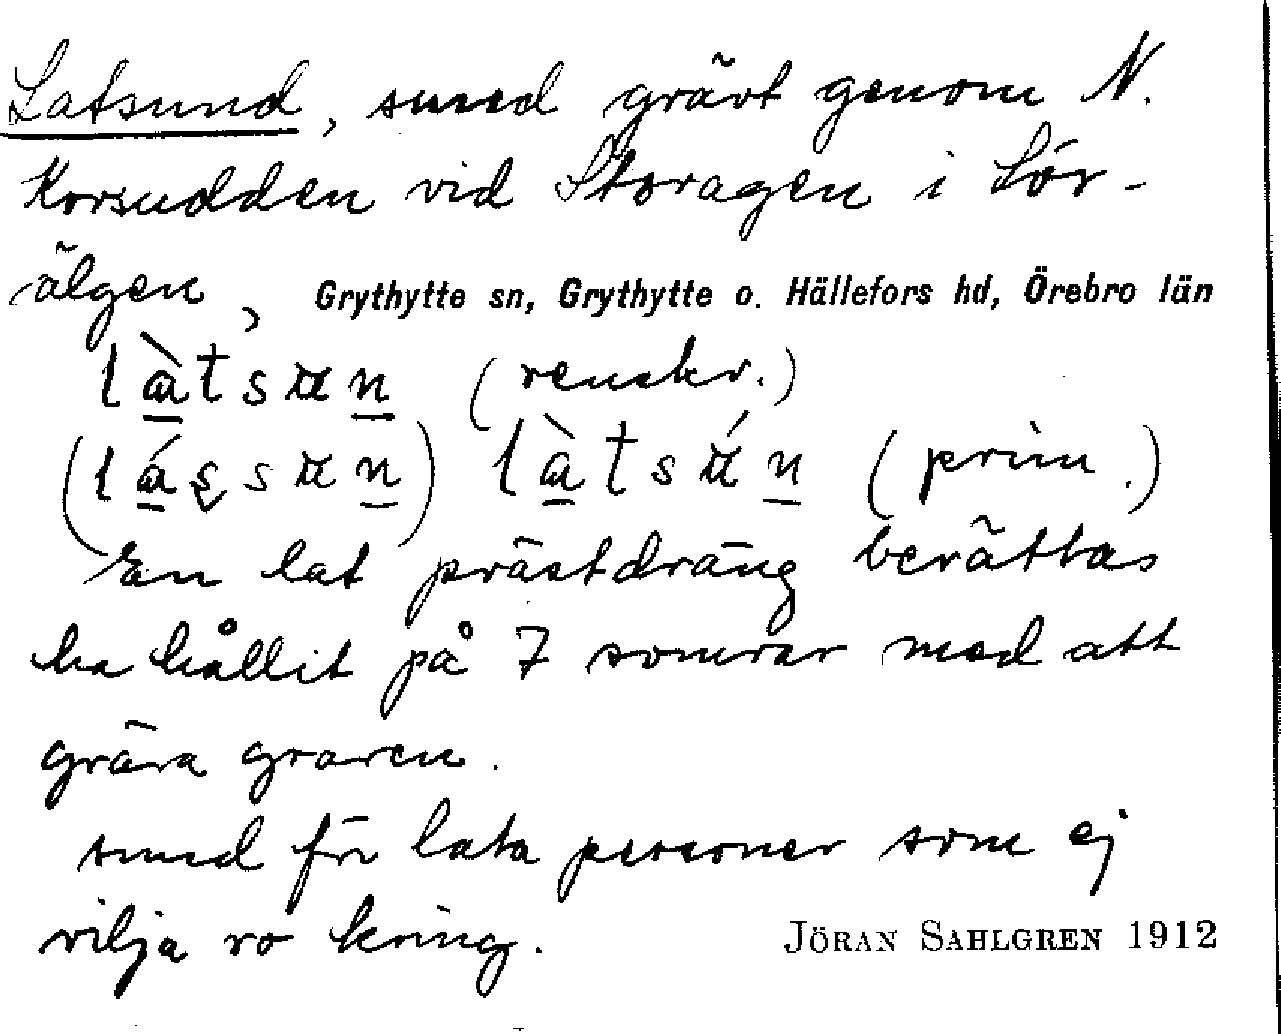 Latsund, sund grävt genom N.
Korsudden vid Storagen i Sör-
älgen, Grythytte sn, Grythytte o. Hällefors hd, Örebro län
làtsun (renskr.)
(lássun) làtsún (prim.)
En lat prästdräng berättas
ha hållit på 7 somrar med att
gräva graven.
sund för lata personer som ej
vilja ro kring.
JÖRAN SAHLGREN 1912